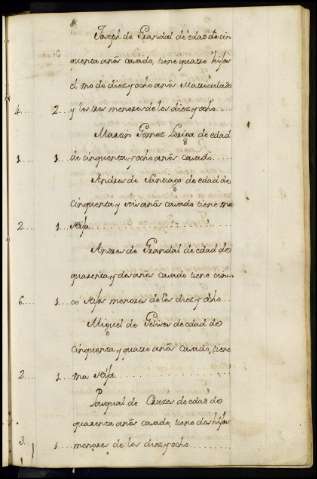 Joseph de Grandal de edad de cin
quenta años casado, tiene quatro hijos
el uno de diez y ocho años Matriculado
4... 2... y los tres menores de los diez y ocho
Martin Perez de edad
1... 1... de cinquenta y ocho años casado
Andres de Santiago de edad de
cinquenta y seis años casado tiene una
2... 1... Hija
Andres de Grandal de edad de
quarenta y dos años casado tiene cin
6... 1... co Hijos menores de los diez y ocho
Miguel de de edad de
cinquenta y quatro años casado, tiene
2... 1... una Hija
Pasqual de de edad de
quarenta años casado tiene dos hijos
3... 1... menores de los diez y ocho